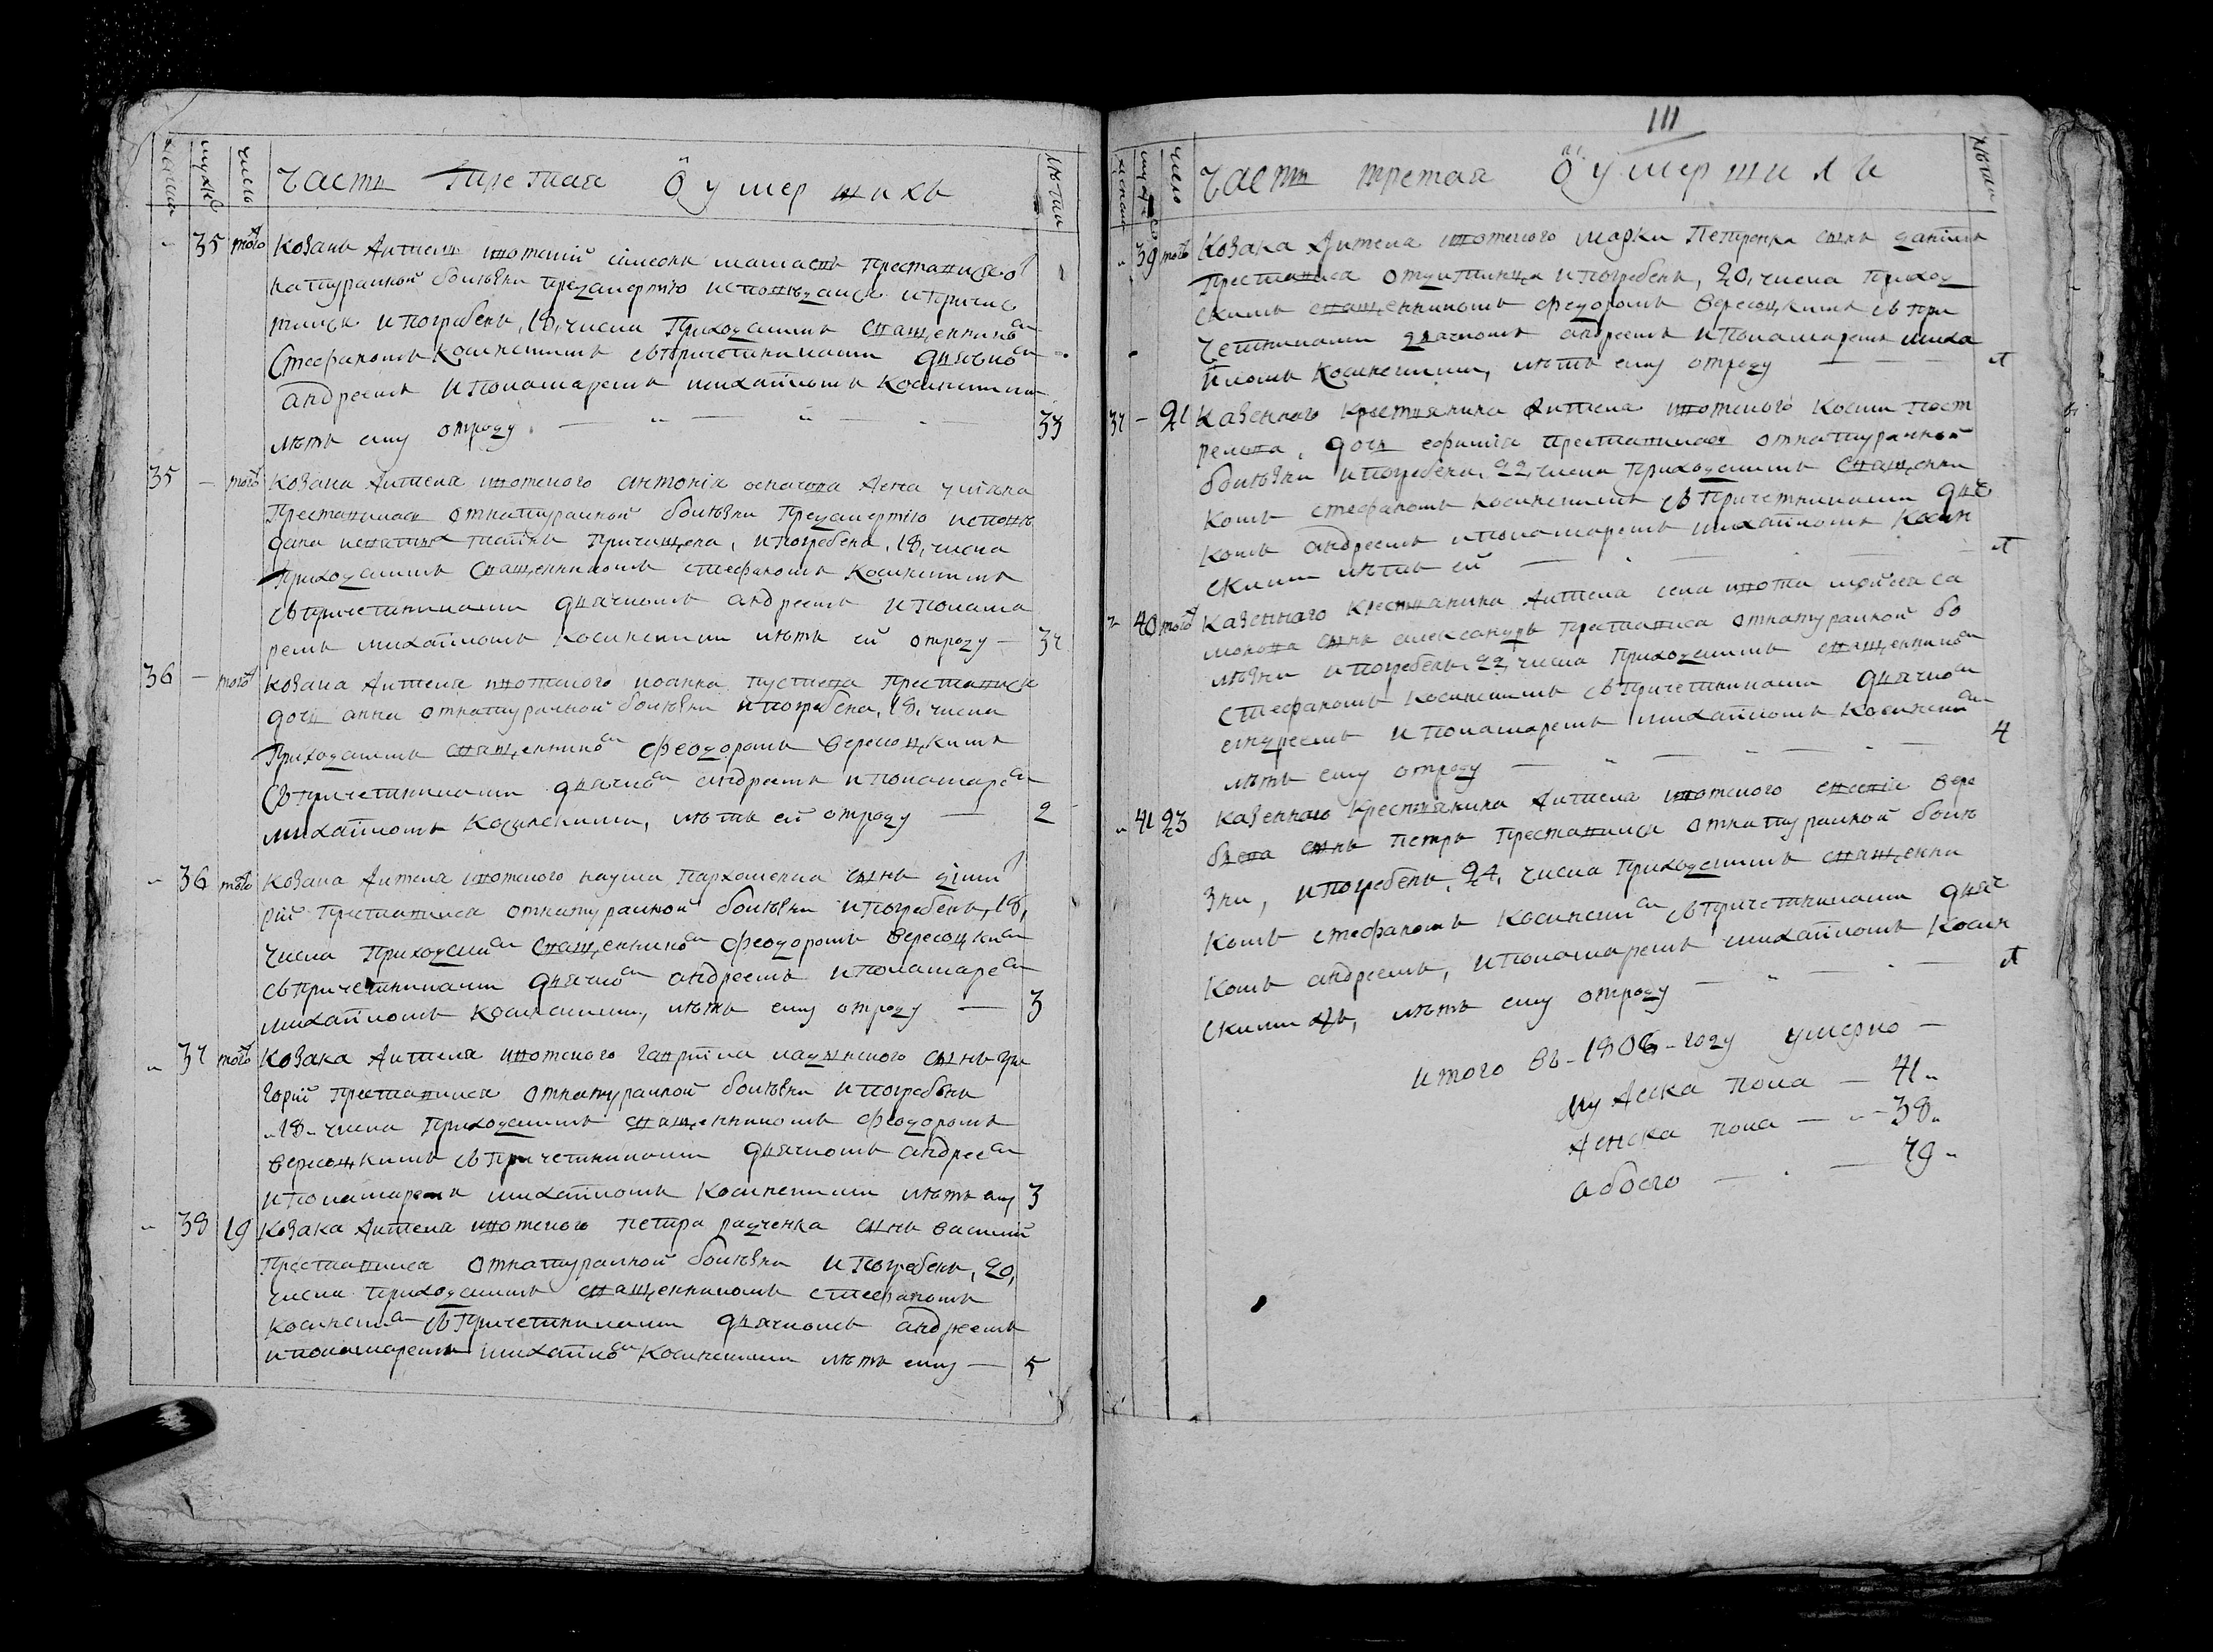 женска
мужеска
число
Часть Третая О умершихъ
лѣта
35 того Козакъ Житель шотскій симеонъ престависѧ от
натуралной болѣзни предсмертію исповѣданъ и причас
тился и погребенъ, 18, числа Приходскимъ священником
Стефаномъ Косинскимъ съ причетниками дьячком
андреемъ и пономаремъ михайломъ Косинскимъ
лѣтъ ему отроду 33
35 того Козака Жителя шотского антонія жена уліана
Преставилася отнатуралной болѣзни Предсмертію исповѣ
дана исвятихъ таинъ Причащена, и погребена, 18, числа
Приходскимъ Священникомъ стефаномъ Косинскимъ
съ причетниками дьячкомъ андреемъ и понома
ремъ михайломъ Косинскимъ лѣтъ ей отроду 37
36 того Козака Жителя шотского иоанна Преставись
дочь анна отнатуралной болѣзни и погребена, 18, числа
Приходскимъ священником феодоромъ Вересоцкимъ
съ причетниками дьячком андреемъ и пономарем
михайломъ Косинскимъ, лѣтъ ей отроду 2
36 того Козака Жителя шотского наума Пархоменка сынъ дімит
рій Преставился отнатуралной болѣзни и погребенъ, 18,
числа Приходским священником феодоромъ Вересоцким
съ причетниками дьячком андреемъ и пономарем
михайломъ Косинскимъ, лѣтъ ему отроду 3
37 того Козака Жителя шотского гавріила сынъ гри
горій Преставился отнатуралной болѣзни и погребенъ
18 числа Приходскимъ священникомъ феодоромъ
Вересоцкимъ съ причетниками дьячкомъ андреем
и пономаремъ михайломъ Косинскимъ лѣтъ ему 3
38 19 Козака Жителя шотского петра радченка сынъ василій
Преставился отнатуралной болѣзни и погребенъ, 20,
числа Приходскимъ священникомъ стефаномъ
Косинским съ причетниками дьячкомъ андреемъ
и пономаремъ михайлом Косинскимъ лѣтъ ему 5
111
женска
мужеска
число
Часть третая О умершихъ
лѣта
39 того Козака Жителя шотского марка Петренка сынъ даніилъ
Преставился и погребенъ, 20, числа Приход
скимъ священникомъ феодоромъ Вересоцкимъ съ при
четниками дьячкомъ андреемъ и пономаремъ миха
йломъ Косинскимъ, лѣтъ ему отроду 1
37 21 Казенного Крестьянина Жителя шотского Косми
дочь ефимія преставилася отнатуралной
болѣзни и погребена, 22, числа Приходскимъ Священни
комъ стефаномъ косинскимъ съ Причетниками дьяч
комъ андреемъ и пономаремъ михайломъ Косин
скимъ лѣтъ ей 1
40 того Казенного Крестьянина Жителя села шота мойсея са
мохвала сынъ александръ Преставился отнатуралной бо
лѣзни и погребенъ, 22, числа Приходскимъ священником
стефаномъ косинскимъ съ Причетниками дьячком
андреемъ и пономаремъ михайломъ Косинским
лѣтъ ему отроду 4
41 23 Казенного Крестьянина Жителя шотского
сынъ петръ Преставился отнатуралной болѣ
зни, и погребенъ, 24, числа Приходскимъ священни
комъ стефаномъ Косинским съ Причетниками дьяч
комъ андреемъ, и пономаремъ михайломъ Косин
скимъ, лѣтъ ему отроду 1
итого въ 1806 году умерло
мужеска пола 41
женска пола 38
обоего 79